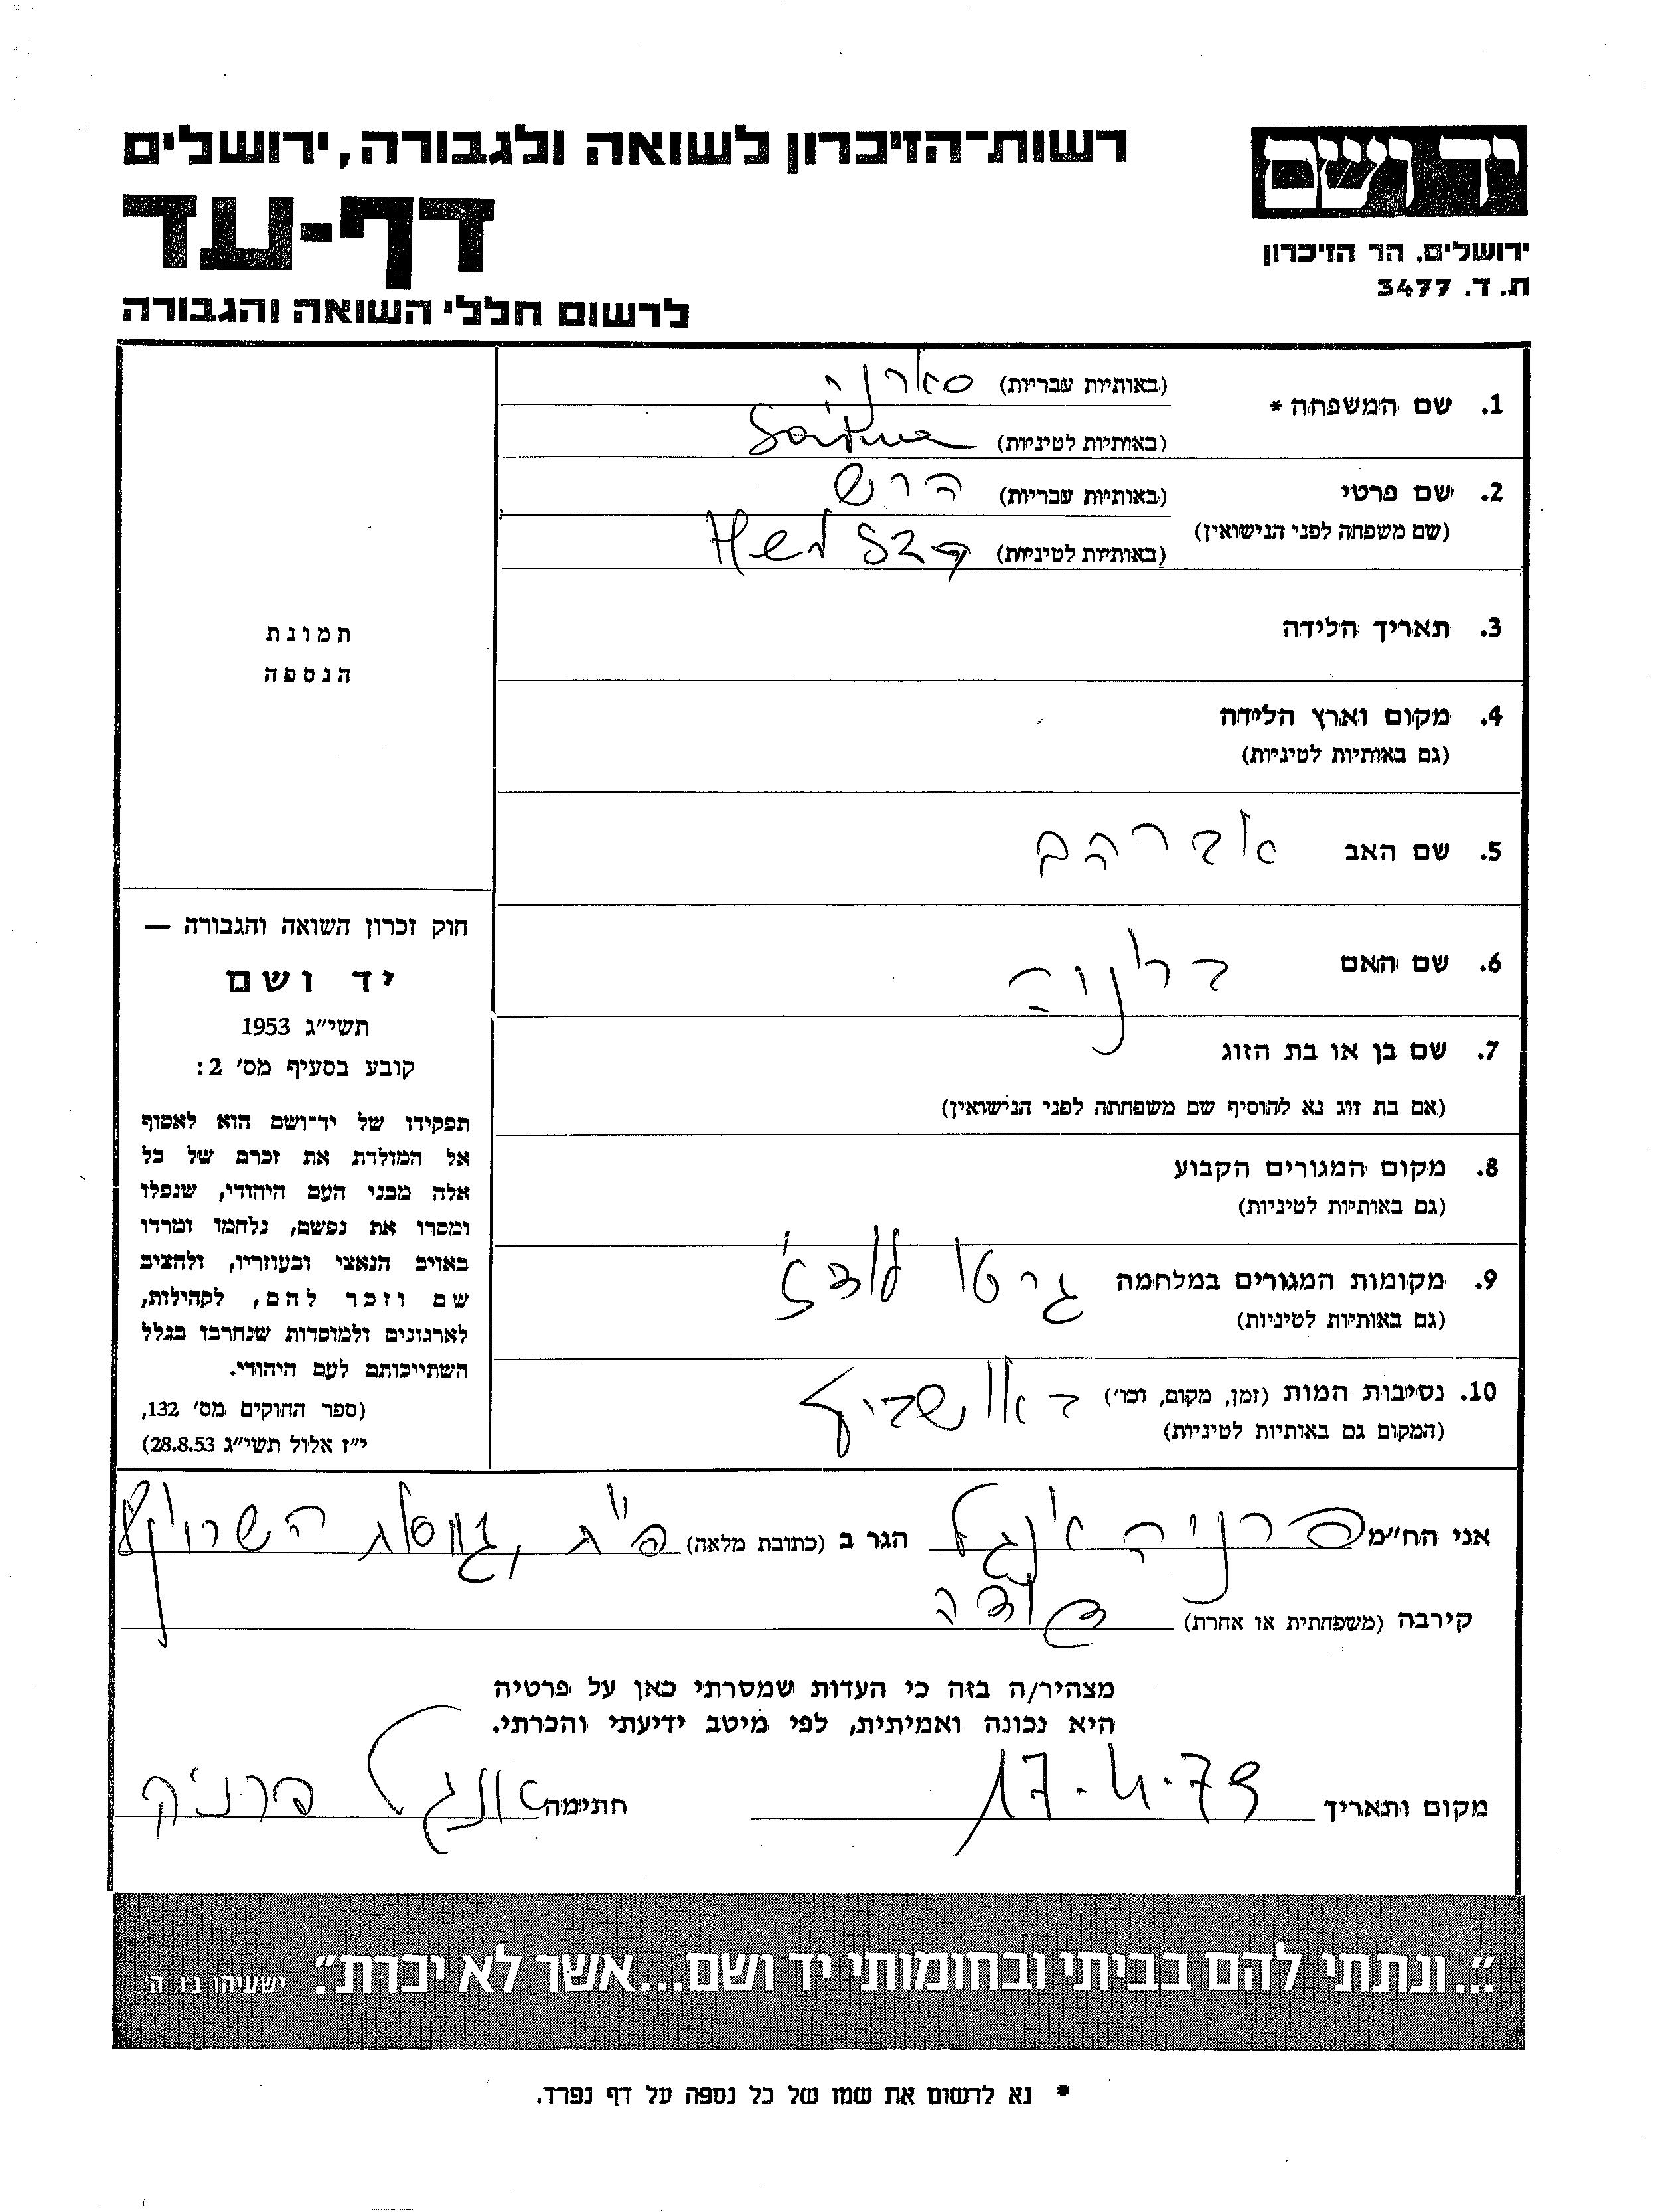 יד ושם
ירושלים, הר הזיכרון
ת. ד. 3477
רשות־הזיכרון לשואה ולגבורה, ירושלים
דף-עד
לרשום חללי השואה והגבורה
1. שם המשפחה *
(באותיות עבריות)
(באותיות לטיניות)
2. שם פרטי
(שם משפחה לפני הנישואין)
(באותיות עבריות) הרש
(באותיות לטיניות)
3. תאריך הלידה
4. מקום וארץ הלידה
(גם באותיות לטיניות)
5. שם האב אברהם
6. שם האם
7. שם בן או בת הזוג
(אם בת זוג נא להוסיף שם משפחתה לפני הנישואין)
8. מקום המגורים הקבוע
(גם באותיות לטיניות)
9. מקומות המגורים במלחמה גיטו לודז'
(גם באותיות לטיניות)
10. נסיבות המות (זמן, מקום, וכו') באושביץ
(המקום גם באותיות לטיניות)
תמונת
הנספה
חוק זכרון השואה והגבורה —
יד ושם
תשי"ג 1953
קובע בסעיף מס' 2:
תפקידו של יד־ושם הוא לאסוף
אל המולדת את זכרם של כל
אלה מבני העם היהודי, שנפלו
ומסרו את נפשם, נלחמו ומרדו
באויב הנאצי ובעוזריו, ולהציב
שם וזכר להם, לקהילות,
לארגונים ולמוסדות שנחרבו בגלל
השתייכותם לעם היהודי.
(ספר החוקים מס' 132,
י"ז אלול תשי"ג 28.8.53)
אני הח"מ פרניה אנגל הגר ב (כתובת מלאה) פ"ת,
קירבה (משפחתית או אחרת) דודה
מצהיר/ה בזה כי העדות שמסרתי כאן על פרטיה
היא נכונה ואמיתית, לפי מיטב ידיעתי והכרתי.
מקום ותאריך חתימה אנגל
"...ונתתי להם בביתי ובחומותי יד ושם...אשר לא יכרת". ישעיהו נ"ו, ה'
* נא לרשום את שמו של כל נספה על דף נפרד.